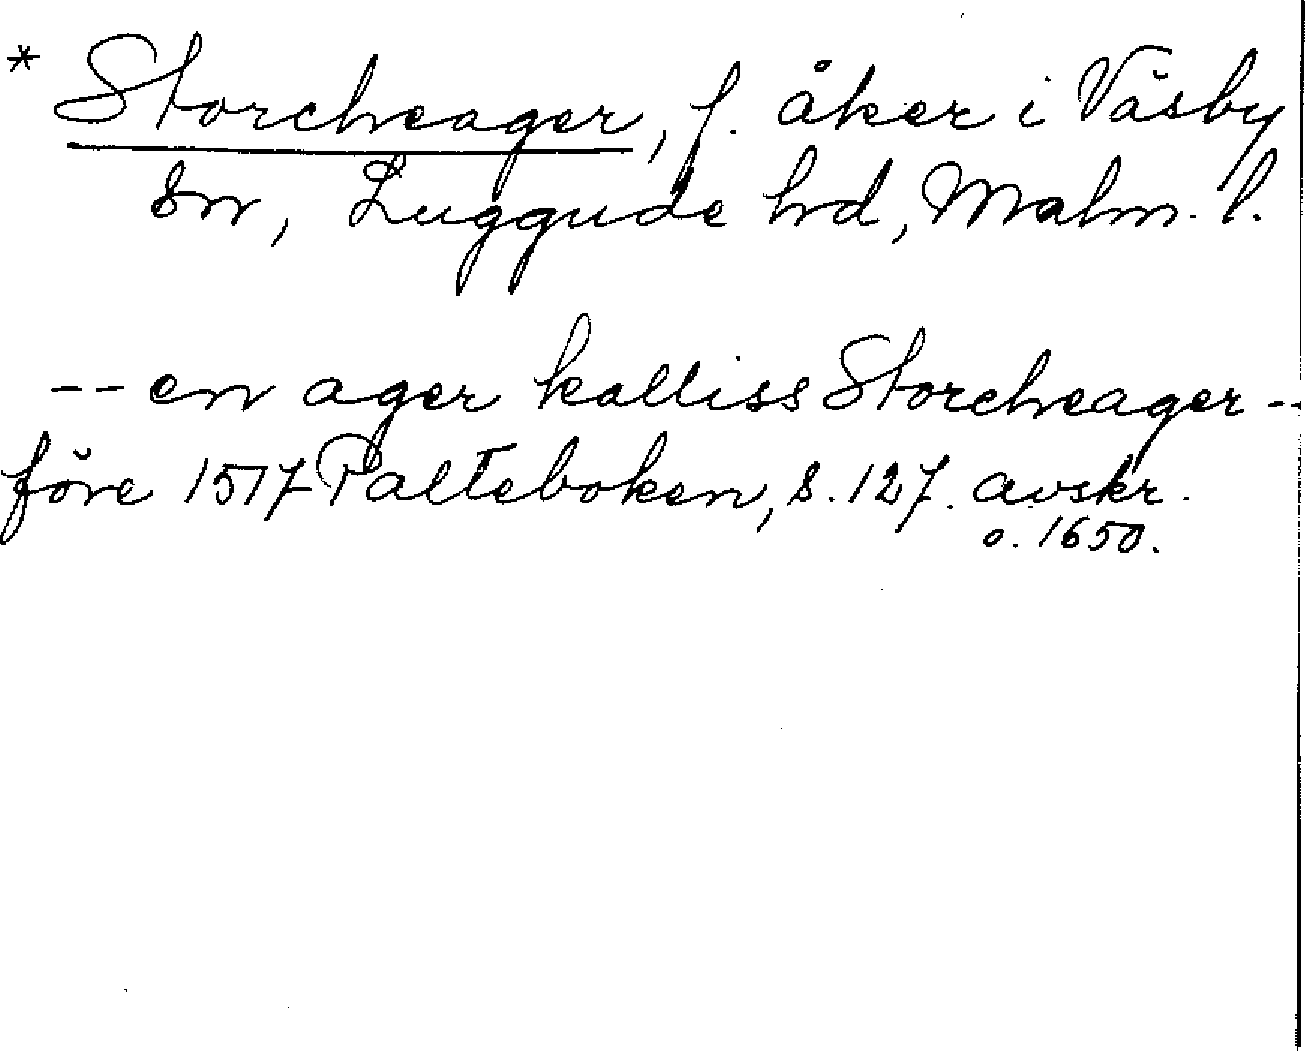 * Storcheager, f. åker i Väsby
sn, Luggude hd, Malm. l.
-- en ager kalliss Storcheager --
före 1517 Palteboken, s. 127. avskr.
o. 1650.